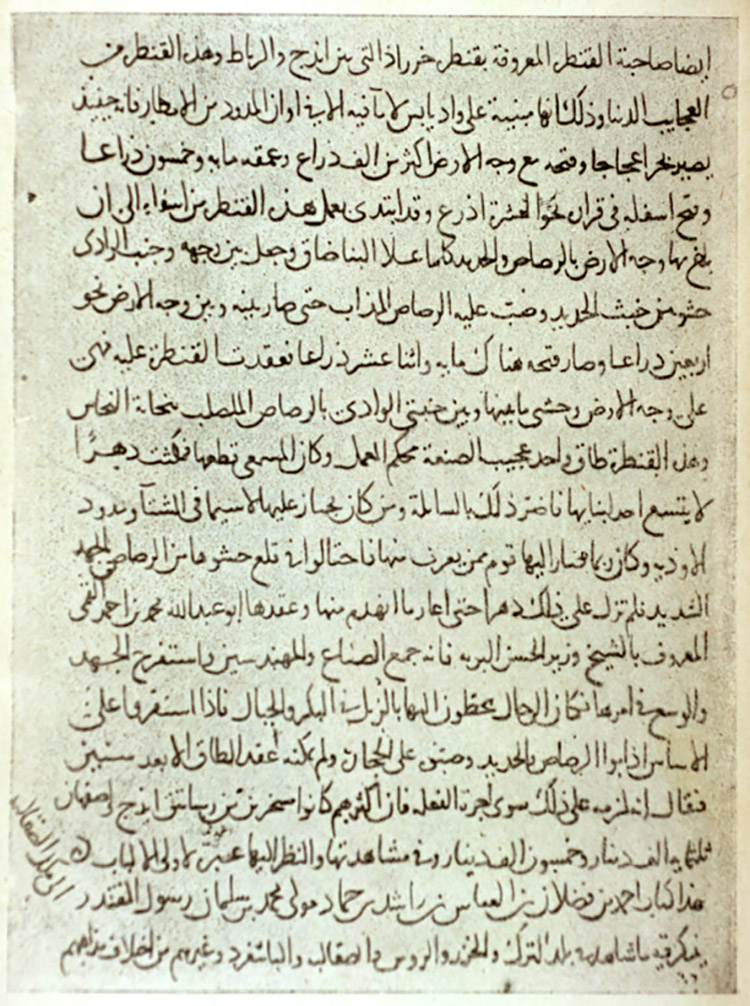 ايضا صاحبة القنطره المعروفة بقنطره خرراذ التى بين ايذج والرباط وهذه القنطره من
العجايب الدنيا وذلك انها مبنية على واد يابس لا مآ فيه الا في اوان المدود من الامطار فانه حينيذ
يصير بحرا عجاجا وفتحه مع وجه الارض اكثر من الف ذراع وعمقه مايه وخمسون ذراعا
وفتح اسفله في قراره نحوا لعشرة اذرع وقد ابتدى بعمل هذه القنطره من اسفله الى ان
بلغ بها وجه الارض بالرصاص والحديد كلما علا البنا ضاق وجعل بين وجهه وجنب الوادى
حشوه من خبث الحديد وصب عليه الرصاص المذاب حتى صار بينه وبين وجه الارض نحو
اربعين ذراعا وصار فتحه هناك مايه واثنا عشر ذراعا فعقدت القنطرة عليه فهى
على وجه الارض وحشى ما بينها وبين جنبتى الوادى بالرصاص الملصلب بنحاتة النحاس
وهذه القنطرة طاق واحد عجيب الصنعة محكم العمل وكان المسمعى قطعها فمكثت دهرًا
لا يتسع احد لبنايها فاضر ذلك بالسابلة ومن كان يجتاز عليها لاسيما فى الشتآ ومدود
الاوديه وكان ربما صار اليها قوم ممن يعرف منها فاحتالوا في قلع حشوها من الرصاص بالجهد
الشديد فلم تزل على ذلك دهرا حتى اعار ما انهدم منها وعقدها ابو عبد الله محمد بن احمد القمى
المعروف بالشيخ وزير الحسن البويه فانه جمع الصناع والمهندسين واستفرغ الجهد
والوسع في امرها فكان الرجال يحطون اليها بالزبل في البكر والحبال فاذا استقروا على
الاساس اذابوا الرصاص والحديد وصبوه على الحجارة ولم يمكنه عقد الطاق الا بعد سنتين
فيقال انه لزمه على ذلك سوى اجرة الفعله فان اكثرهم كانوا مسخرين من رساتيق ايذج واصفهان
ثلثمايه الف دينار وخمسون الف دينار وفي مشاهدتها والنظر اليها عبرة لاولى الالباب
هذا كتاب احمد بن فضلان بن العباس بن راشد بن حماد مولى محمد بن سلمان رسول المقتدر
الى ملك الصقالبه
يذكر فيه ما شاهد في بلد الترك والخزر والروس والصقالبه والباشغرد وغيرهم من اختلاف مذاهبهم